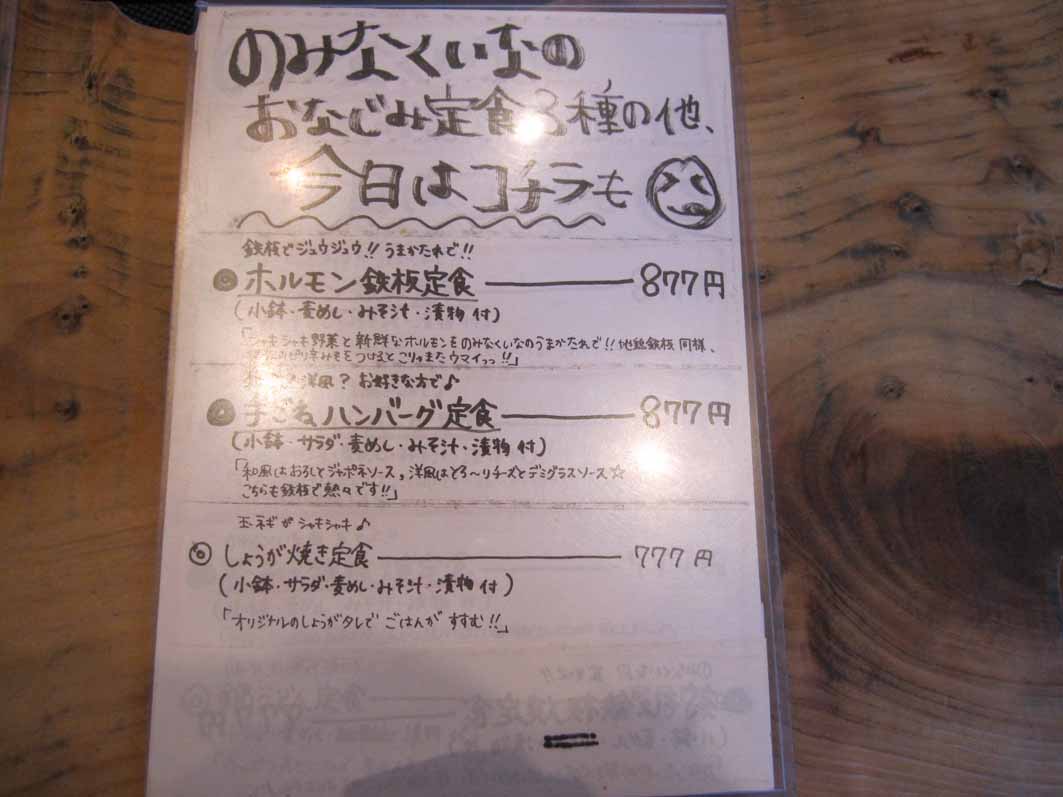 のみなくいなの
おなじみ定食3種の他、
今日はコチラも
鉄板でジュウジュウ!! うまかたれで!!
◎ホルモン鉄板定食 ─── 877円
(小鉢・麦めし・みそ汁・漬物 付)
「シャキシャキ野菜と新鮮なホルモンをのみなくいなのうまかたれで!! 地鶏鉄板同様、
ピリ辛みそをつけるとこりゃまたウマイっっ!!」
洋風? お好きな方で♪
◎手ごねハンバーグ定食 ─── 877円
(小鉢・サラダ・麦めし・みそ汁・漬物 付)
「和風はおろしとジャポネソース,洋風はとろ〜りチーズとデミグラスソース☆
こちらも鉄板で熱々です!!」
玉ネギがシャキシャキ♪
◎しょうが焼き定食 ─── 777円
(小鉢・サラダ・麦めし・みそ汁・漬物 付)
「オリジナルのしょうがタレで ごはんが すすむ!!」